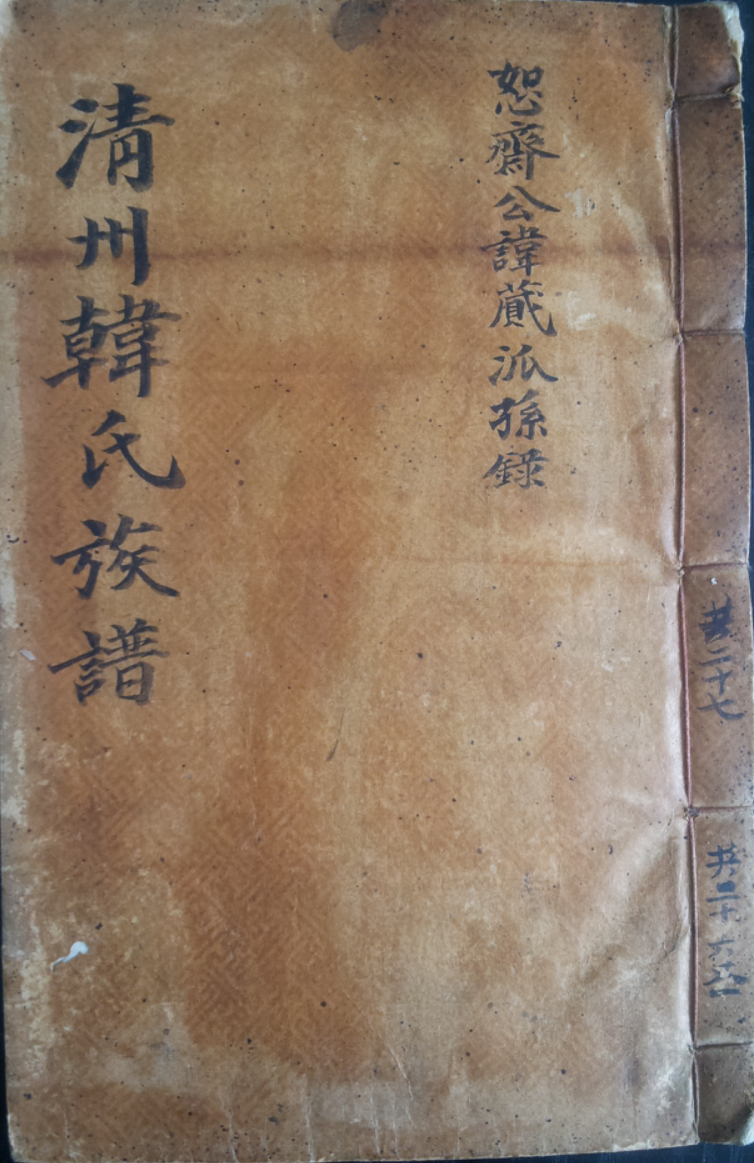 共二十七
恕齋公諱蕆派孫錄
清州韓氏族譜